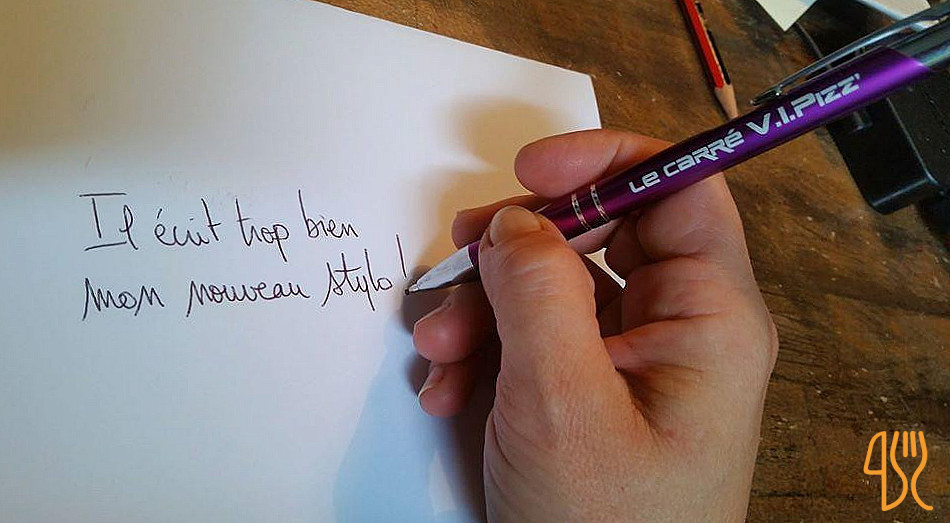 Il écrit trop bien
mon nouveau stylo !
LE CARRÉ V.I.PIZZ'